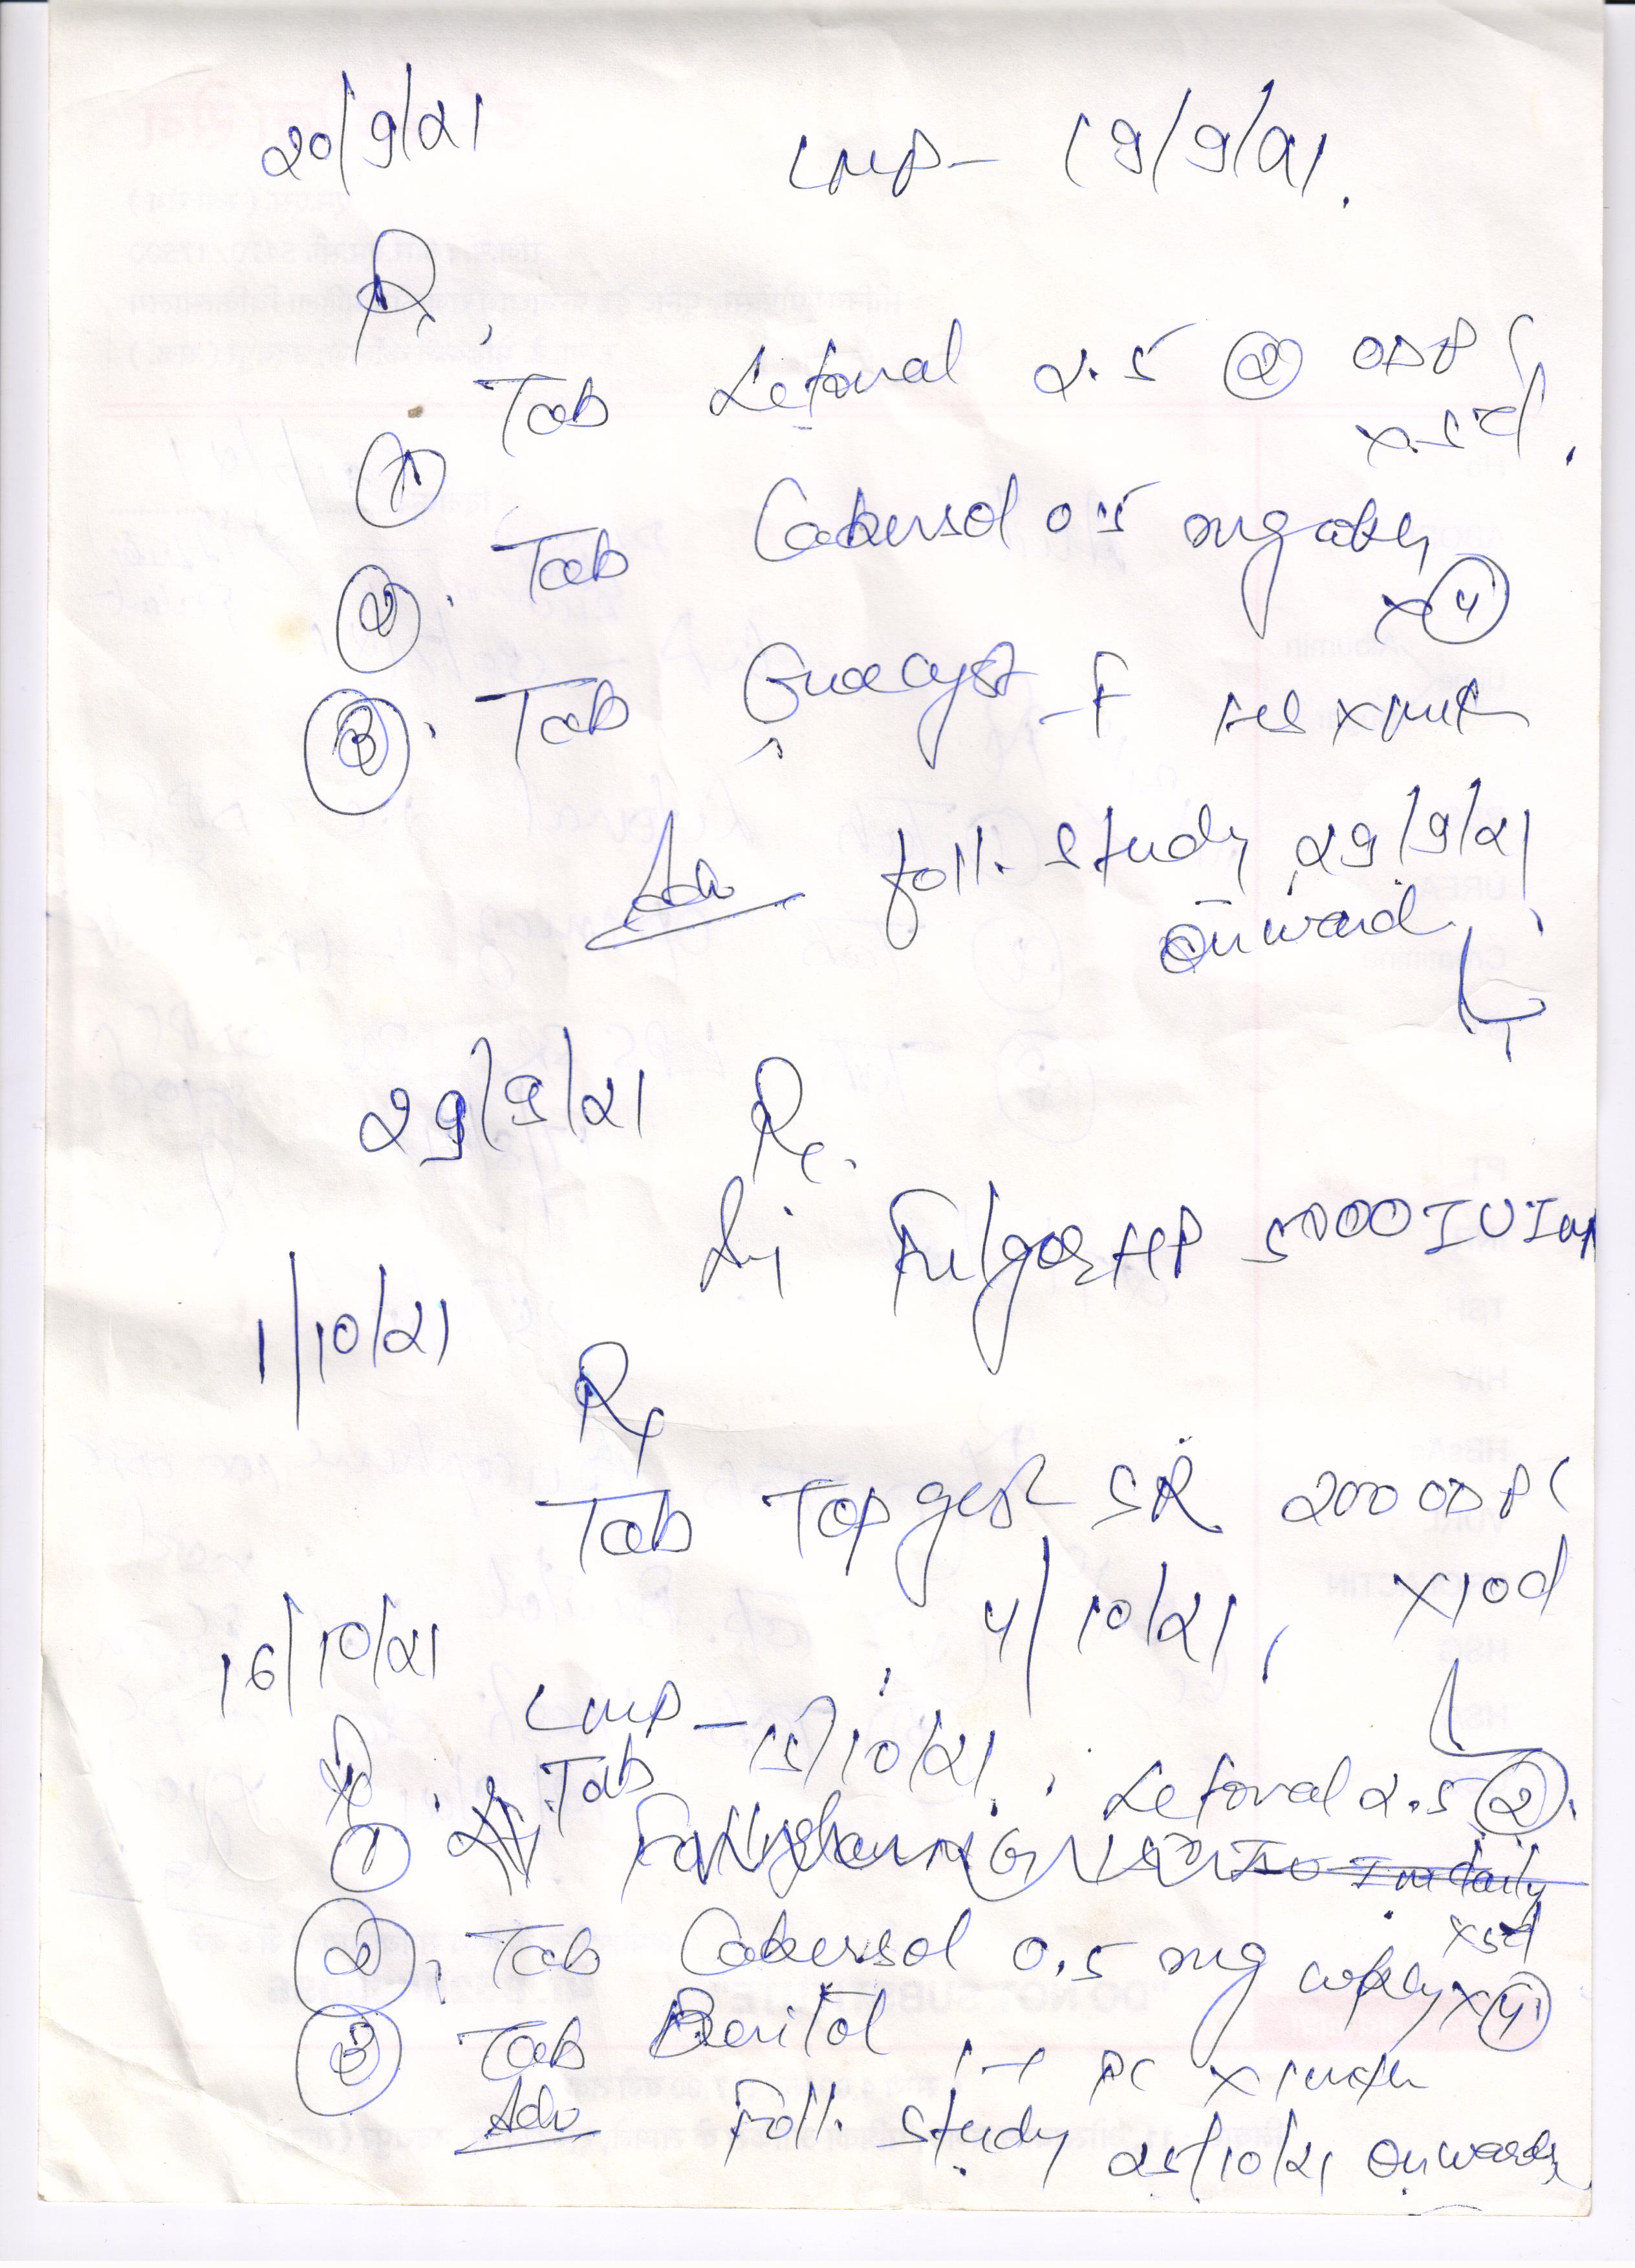 20/9/21 LMP - 19/9/21.
Rx,
① Tab Letoval 2.5 ② OD PC
x 5d.
②. Tab Cabersol 0.5 mg wkly
x ④
③. Tab Ovacyst-F HS x
Adv foll. study 29/9/21
onward
29/9/21 Rx.
Inj FulgorHP 5000 IU Im
1/10/21
Rx
Tab Topgest SR 200 OD PC
4/10/21, x 10d
16/10/21
LMP - 15/10/21.
Rx.
① Tab Letoval 2.5 ②.
Im daily
x 5d
②, Tab Cabersol 0.5 mg wkly x ④
③ Tab 1-1 PC x
Adv Foll. study 25/10/21 onwards